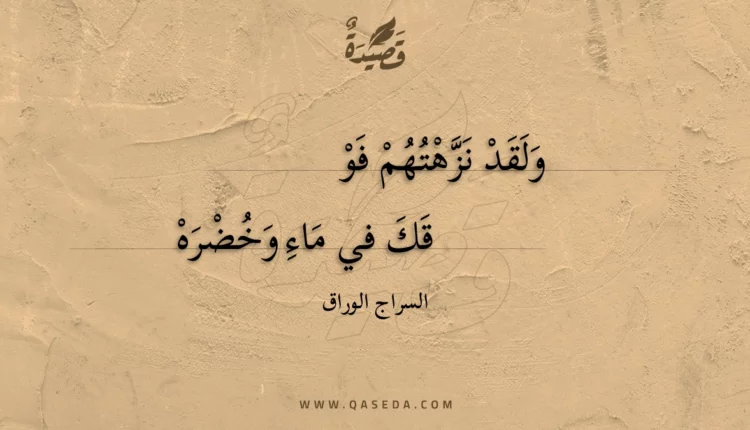 قَصِيدَةٌ
وَلَقَدْ نَزَّهْتُهُمْ فَوْ
قَكَ في مَاءِ وَخُضْرَهْ
السراج الوراق
WWW.QASEDA.COM